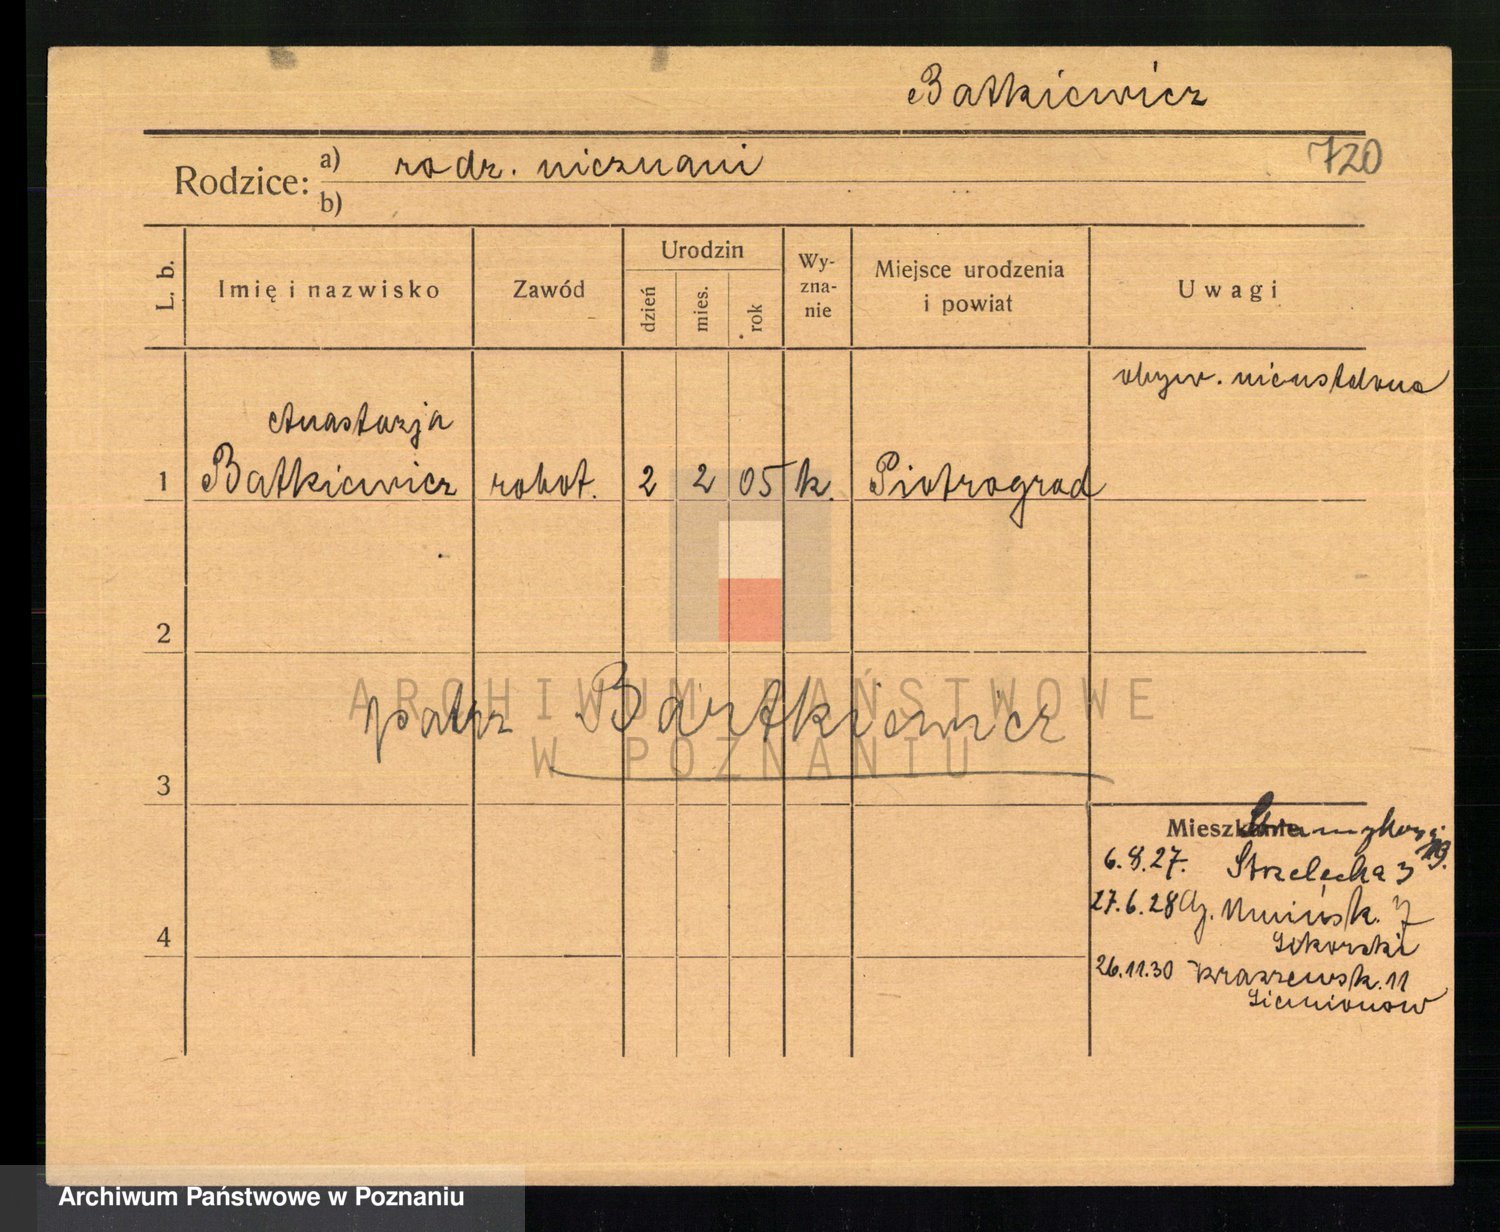 Batkiewicz
720
Rodzice: a) rodz. nieznani
b)
L. b.
Imię i nazwisko
Zawód
Urodzin
dzień
mies.
rok
Wy-
zna-
nie
Miejsce urodzenia
i powiat
Uwagi
obyw. nieustalona
Anastazja
1 Batkiewicz robot. 2 2 05 k. Piotrograd
2
ARCHIWUM PAŃSTWOWE
W POZNANIU
patrz Bartkiewicz
3
Mieszkanie
6.8.27. Strzelecka 3
27.6.28 3
Sikorski
26.11.30 Kraszewsk. 11
Siemionow
4
Archiwum Państwowe w Poznaniu